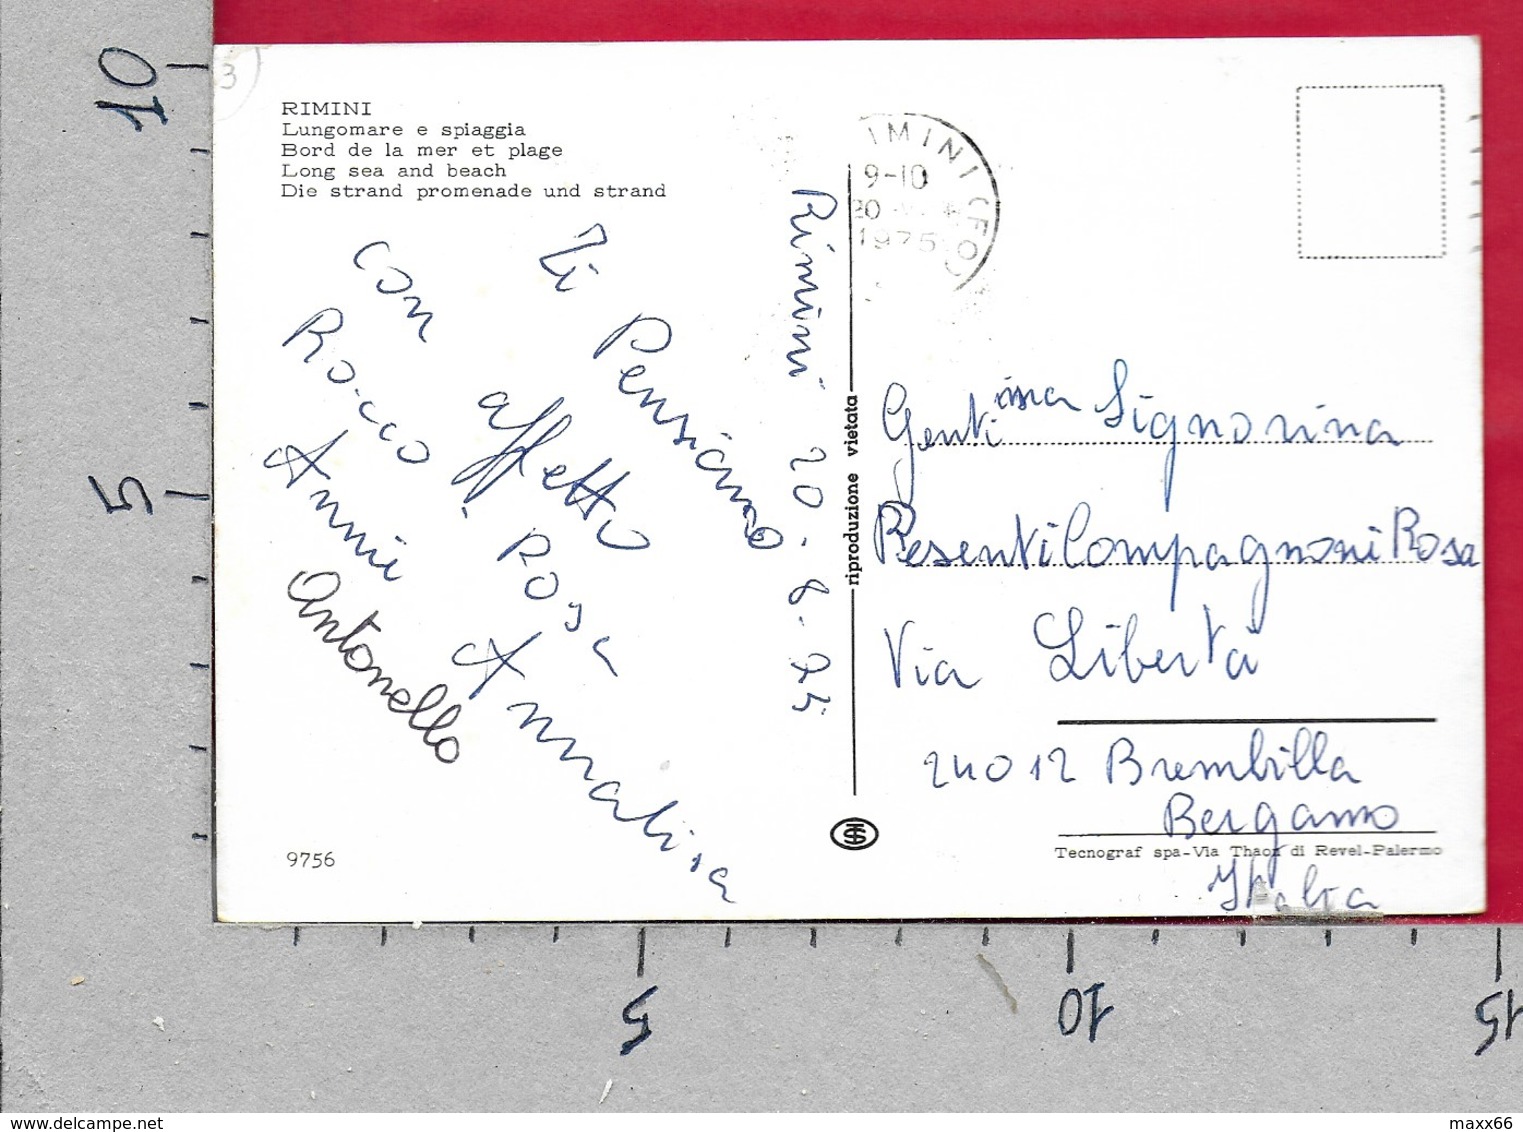 3
RIMINI
Lungomare e spiaggia
Bord de la mer et plage
Long sea and beach
Die strand promenade und strand
Ti Pensiamo
con affetto
Rocco - Rosa
Anni Annalisa
Antonello
Rimini 20.8.75
9756
riproduzione vietata
IMINI (FO)
9-10
20
1975
Gentissma Signorina
Resenti Compagnoni Rosa
Via Libertà
24012 Brembilla
Bergamo
Tecnograf spa-Via Thaon di Revel-Palermo
Italia
10
5
5
10
15
www.delcampe.net
maxx66